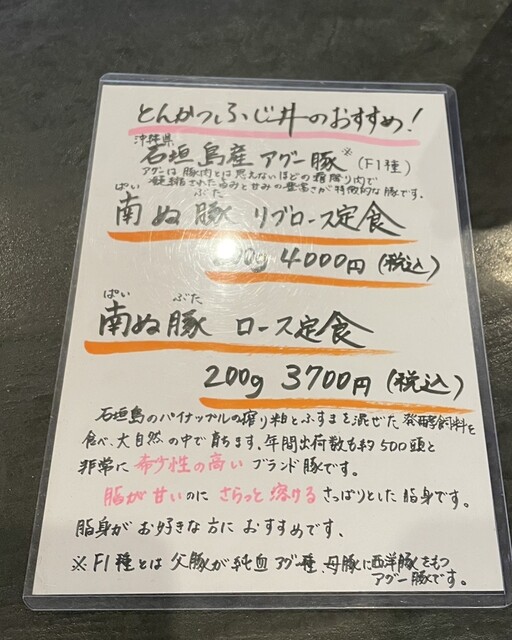 とんかつふじ井のおすすめ!
沖縄県
石垣島産アグー豚※(F1種)
アグーは豚肉とは思えないほどの霜降り肉で
凝縮された旨みと甘みの豊富さが特徴的な豚です。
ぱい ぶた
南ぬ豚 リブロース定食
200g 4000円(税込)
ぱい ぶた
南ぬ豚 ロース定食
200g 3700円(税込)
石垣島のパイナップルの搾り粕とふすまを混ぜた発酵飼料を
食べ、大自然の中で育ちます。年間出荷数も約500頭と
非常に希少性の高いブランド豚です。
脂が甘いのにさらっと溶けるさっぱりとした脂身です。
脂身がお好きな方におすすめです。
※F1種とは父豚が純血アグー種、母豚に西洋豚をもつ
アグー豚です。